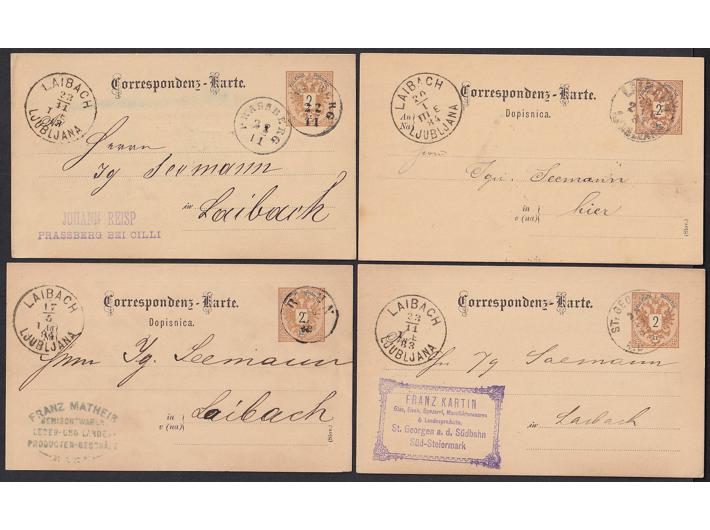 LAIBACH
23
11
LJUBLJANA
Correspondenz-Karte.
2
PRASSBERG
11
PRASSBERG
11
Herrn
Ig Seemann
in Laibach
JOHANN REISP
PRASSBERG BEI CILLI
LAIBACH
20
1
III E
84
LJUBLJANA
Correspondenz-Karte.
Dopisnica.
2
Ign. Seemann
in
v (na)
hier
(Slov.)
LAIBACH
17
5
LJUBLJANA
Correspondenz-Karte.
Dopisnica.
2
Herrn Ig. Seemann
in
v (na)
Laibach
(Slov.)
FRANZ MATHEIS
GEMISCHTWAREN
LEDER-UND LANDES-
PRODUCTEN-GESCHÄFT
LAIBACH
23
11
83
LJUBLJANA
Correspondenz-Karte.
ST. GEO
2
Ig Saemann
in Laibach
FRANZ KARTIN
Glas, Eisen, Spezerei, Manufakturwaaren
& Landesproducte.
St. Georgen a. d. Südbahn
Süd-Steiermark